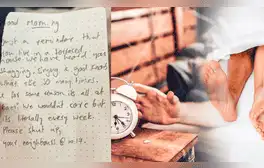 Good Morning
just a reminder that
you live in a terraced
house. We have heard you
shagging. Enjoy a good
so many times.
is all at
We wouldn't care but
is literally every week.
Please shut up,
your neighbours @ no.17.